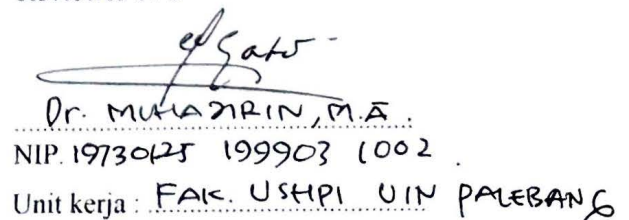 Dr. MUHAJIRIN, M.A.
NIP. 19730125 199903 1002
Unit kerja : FAK. USHPI UIN PALEBANG